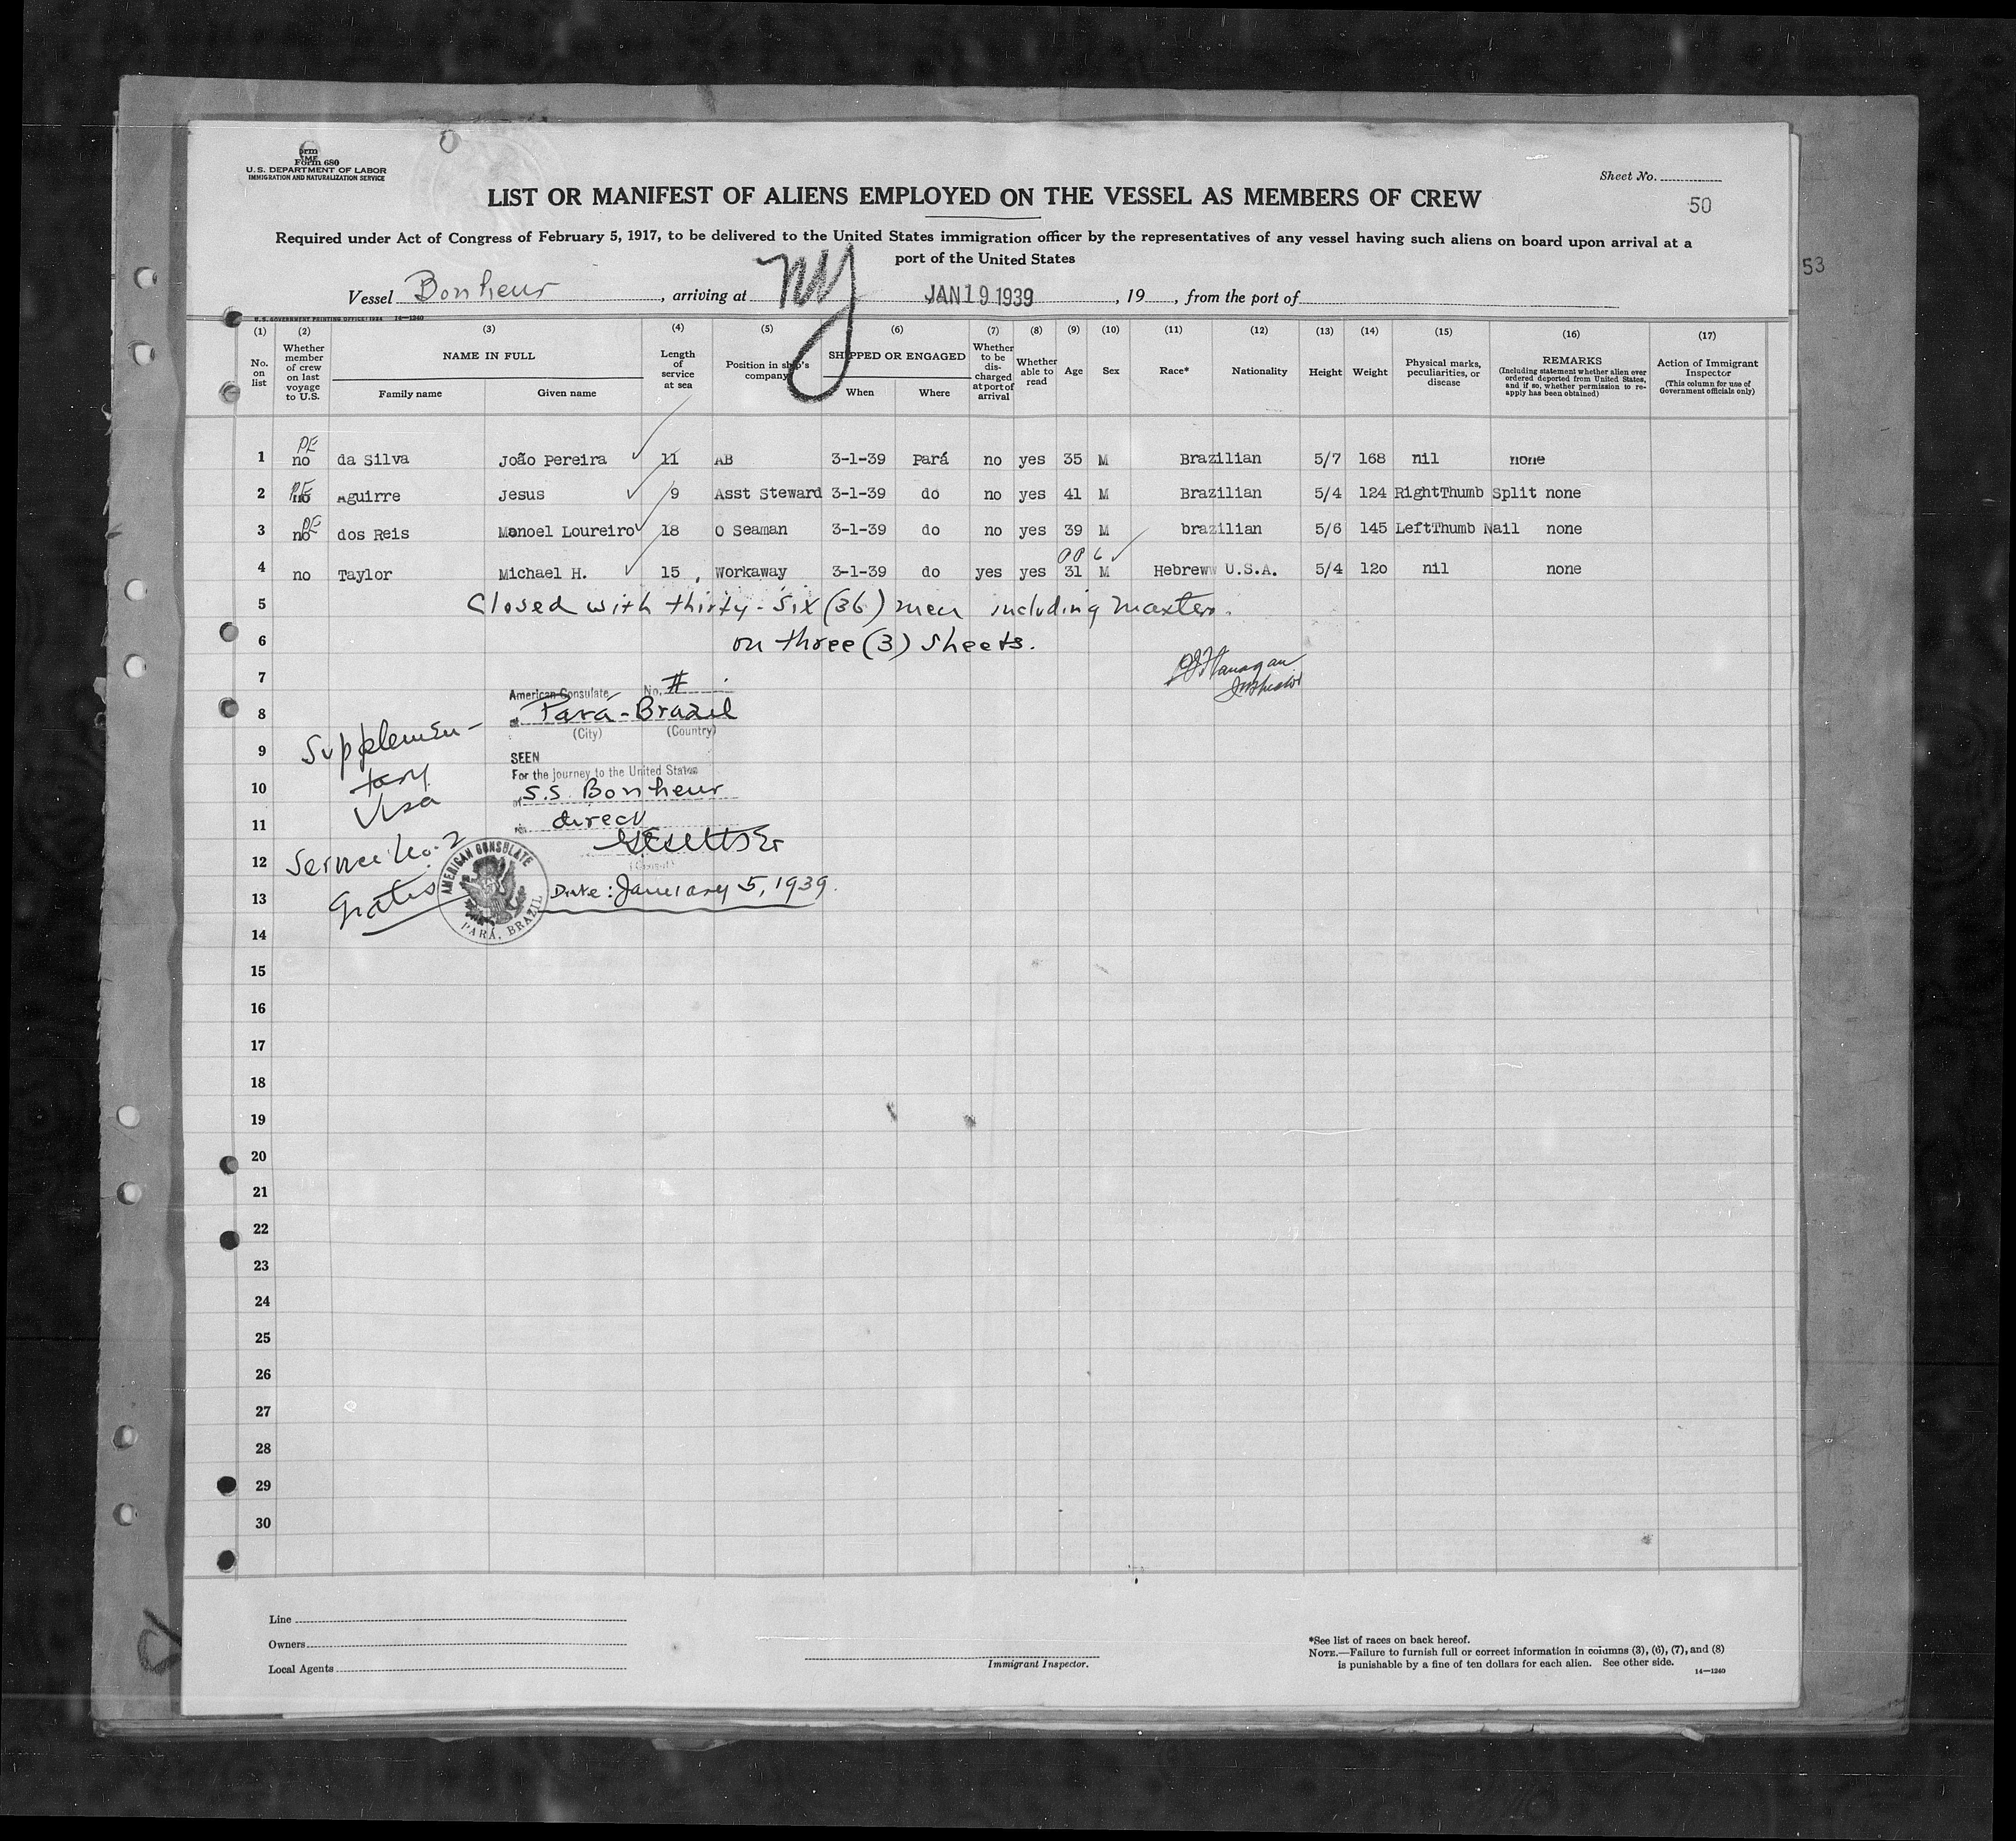 Form 680
U.S. DEPARTMENT OF LABOR
IMMIGRATION AND NATURALIZATION SERVICE
Sheet No.
50
LIST OR MANIFEST OF ALIENS EMPLOYED ON THE VESSEL AS MEMBERS OF CREW
Required under Act of Congress of February 5, 1917, to be delivered to the United States immigration officer by the representatives of any vessel having such aliens on board upon arrival at a
port of the United States
53
Vessel Bonheur, arriving at NY JAN 19 1939, 19, from the port of
U.S. GOVERNMENT PRINTING OFFICE: 1934 14—1240
(1) (2) (3) (4) (5) (6) (7) (8) (9) (10) (11) (12) (13) (14) (15) (16) (17)
No. on list
Whether member of crew on last voyage to U.S.
NAME IN FULL
Family name
Given name
Length of service at sea
Position in ship's company
SHIPPED OR ENGAGED
When
Where
Whether to be discharged at port of arrival
Whether able to read
Age
Sex
Race*
Nationality
Height
Weight
Physical marks, peculiarities, or disease
REMARKS
(Including statement whether alien ever ordered deported from United States, and if so, whether permission to reapply has been obtained)
Action of Immigrant Inspector
(This column for use of Government officials only)
PE
1 no da Silva João Pereira 11 AB 3-1-39 Pará no yes 35 M Brazilian 5/7 168 nil none
PE
2 no Aguirre Jesus 9 Asst Steward 3-1-39 do no yes 41 M Brazilian 5/4 124 RightThumb Split none
PE
3 no dos Reis Manoel Loureiro 18 O Seaman 3-1-39 do no yes 39 M brazilian 5/6 145 LeftThumb Nail none
4 no Taylor Michael H. 15 , Workaway 3-1-39 do yes yes 31 M Hebreww U.S.A. 5/4 120 nil none
5 Closed with thirty-six (36) men including master.
6 on three (3) sheets.
7
Flanagan
Inspector
American Consulate No. #
8
at Pará - Brazil
(City) (Country)
Supplemen-
tary
Visa
9
SEEN
For the journey to the United States
10
of S.S. Bonheur
11
direct
Service No. 2
gratis
12
(Consul)
AMERICAN CONSULATE
PARÁ, BRAZIL
13
Date: January 5, 1939.
14
15
16
17
18
19
20
21
22
23
24
25
26
27
28
29
30
Line
Owners
Local Agents
Immigrant Inspector.
*See list of races on back hereof.
NOTE.—Failure to furnish full or correct information in columns (3), (6), (7), and (8)
is punishable by a fine of ten dollars for each alien. See other side.
14—1240